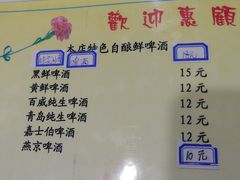 歡迎惠顧
本店特色自酿鲜啤酒
黑鲜啤酒 15元
黄鲜啤酒 12元
百威纯生啤酒 12元
青岛纯生啤酒 12元
嘉士伯啤酒 12元
燕京啤酒 10元